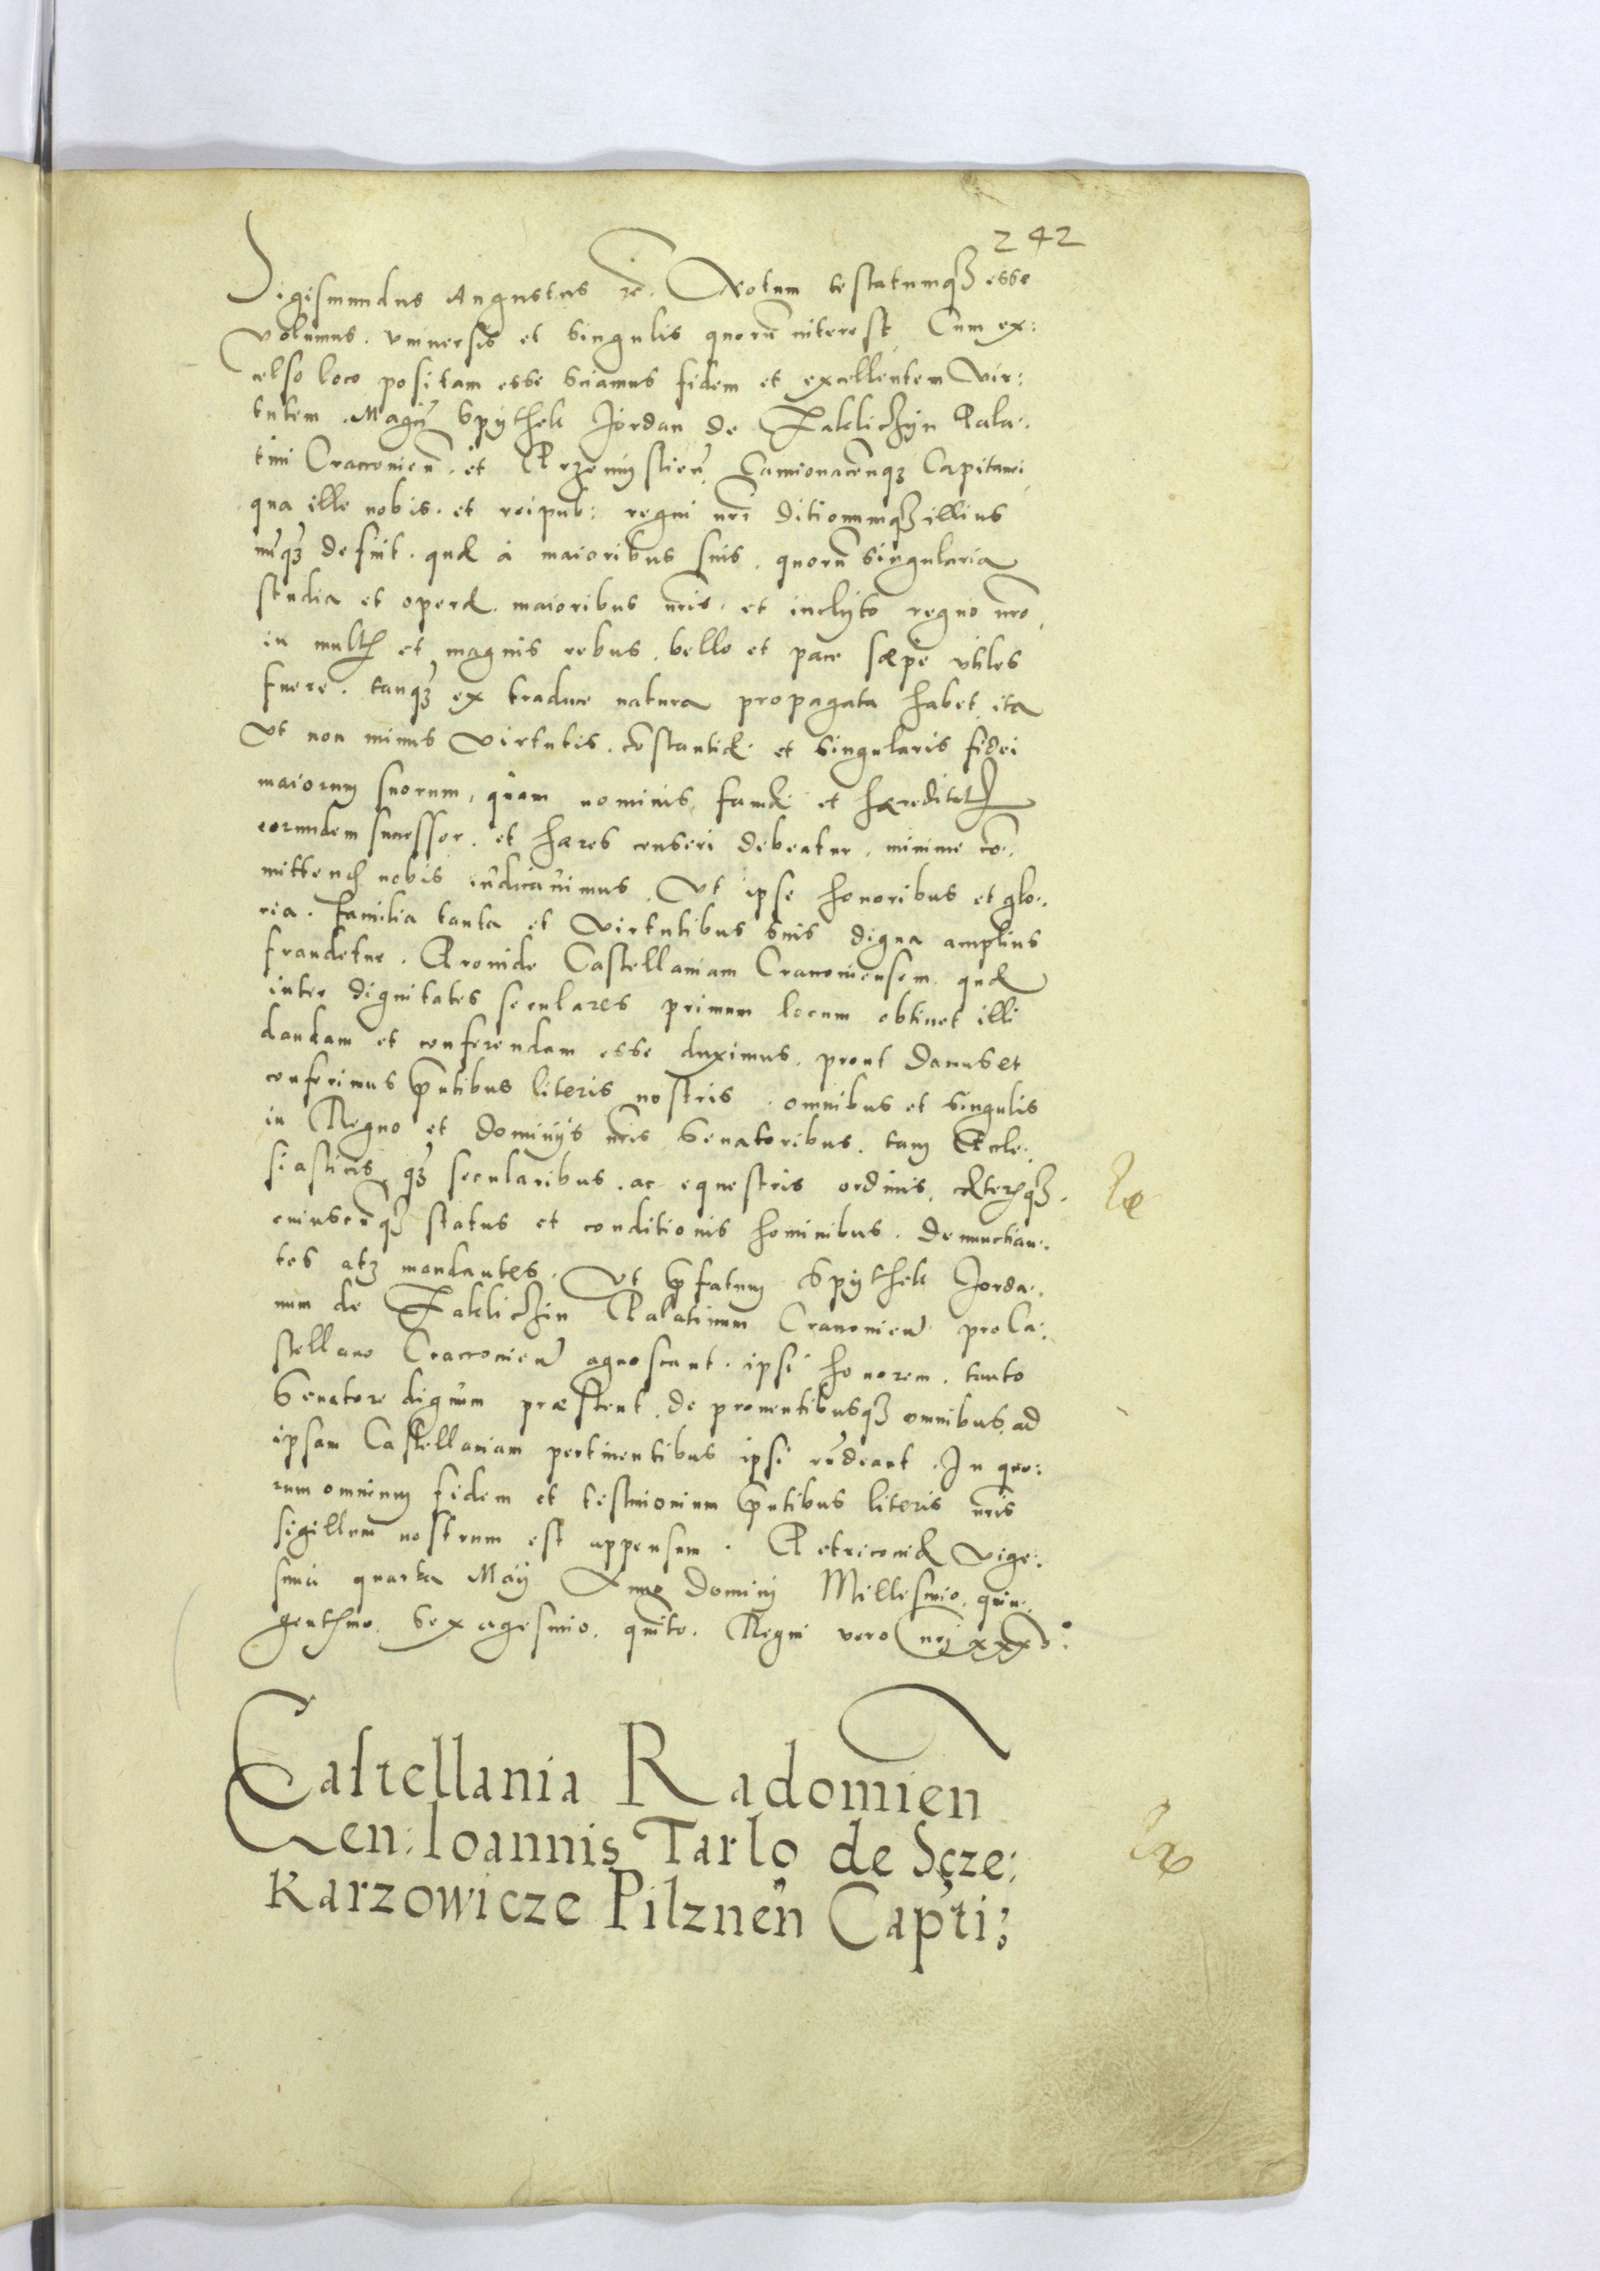 242
Sigismundus Augustus rē. Notum testatumqȝ esse
volumus. vniuersis et singulis quorū interest, Cum ex:
celso loco positam esse sciamus fidem et excellentem vir:
tutem. Magcī Spythek Jordan de Zakliczyn Pala:
tini Cracouien̄. et Przemyslien̄, Camionacenqȝ Capitanei
qua ille nobis. et reipub: regni nrī ditionumqȝ illius
nūqȝ defuit. quę à maioribus suis, quorū singularia
studia et operę. maioribus nrīs. et inclyto regno nrō,
in multis et magnis rebus, bello et pace sæpe vtiles
fuere. tanqȝ ex traduce natura propagata habet, ita
vt non minus virtutis. cōstantię. et singularis fidei
maiorum suorum, quam nominis, famę et hæreditatis
eorundem successor. et hæres censeri debeatur, minime cō:
mittendū nobis iudicauimus, Vt ipse honoribus et glo:
ria. familia tanta et virtutibus suis digna amplius
fraudetur. Proinde Castellaniam Cracouiensem, quę
inter dignitates seculares primum locum obtinet illi
dandam et conferendam esse duximus, prout damus et
conferimus pn̄tibus literis nostris. omnibus et singulis
in Regno et dominijs nrīs Senatoribus. tam Eccle:
siasticis, qȝ secularibus. ac equestris ordinis, cęterisqȝ.
cuiuscūqȝ status et conditionis hominibus. denunctian:
tes atqȝ mandantes. Vt pfatum Spythek Jorda:
num de Zakliczin Palatinum Cracouien̄ pro Ca:
stellano Cracouien̄ agnoscant. ipsi honorem. tanto
Senatore dignum præstent, de prouentibusqȝ omnibus, ad
ipsam Castellaniam pertinentibus ipsi rn̄deant. In quo:
rum omnium fidem et testimonium pn̄tibus literis nrīs
sigillum nostrum est appensum. Petricouię vige:
sima quarta Maij Anno Domini Millesimo, quin:
gentesimo. Sexagesimo. quinto. Regni vero nrī xxxvº.
Castellania Radomien
cen: Ioannis Tarlo de Scze:
karzowicze Pilznen̄ Capti: